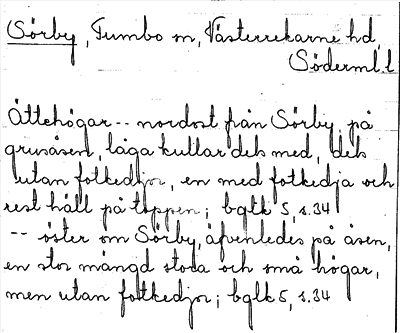 Sörby, Tumbo sn, Västerrekarne hd,
Söderml. l.
Ättehögar -- nordost från Sörby, på
grusåsen, låga kullar dels med, dels
utan fotkedjor, en med fotkedja och
rest häll på toppen; bgtk 5, s. 34
-- öster om Sörby, äfvenledes på åsen,
en stor mängd stora och små högar,
men utan fotkedjor; bgtk 5, s. 34